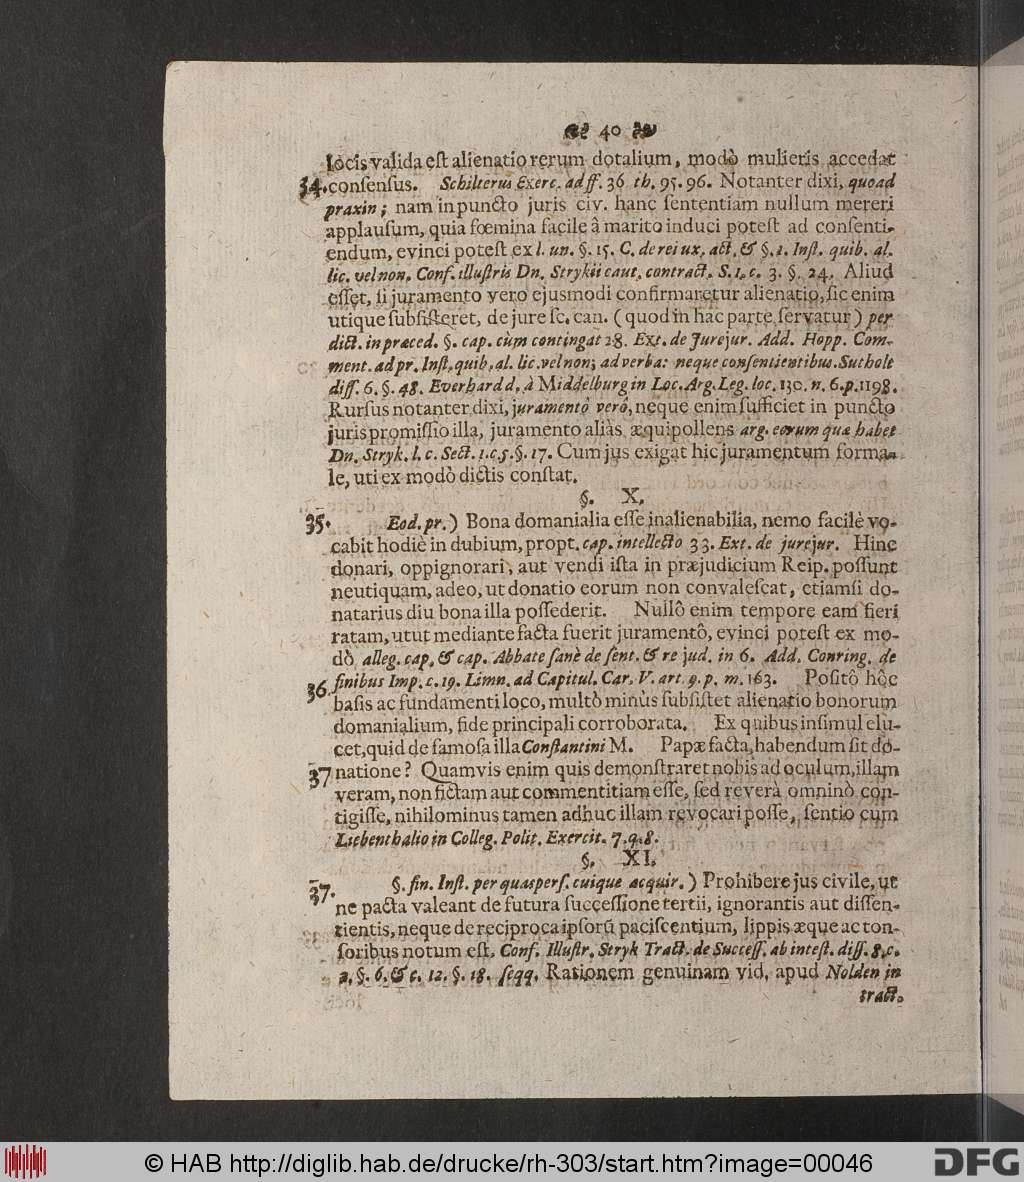 40
locis valida est alienatio rerum dotalium, modò mulieris accedat
34. consensus. Schilterus Exerc. ad ff. 36 th. 95. 96. Notanter dixi, quoad
praxin; nam in puncto juris civ. hanc sententiam nullum mereri
applausum, quia fœmina facile â marito induci potest ad consenti-
endum, evinci potest ex l. un. §. 15. C. de rei ux. act. & §. 1. Inst. quib. al.
lic. vel non. Conf. illustris Dn. Strykii caut. contract. S. 1. c. 3. §. 24. Aliud
esset, si juramento vero ejusmodi confirmaretur alienatio, sic enim
utique subsisteret, de jure sc. can. (quod in hac parte servatur) per
dict. in præced. §. cap. cùm contingat 28. Ext. de Jurejur. Add. Hopp. Com-
ment. ad pr. Inst. quib. al. lic. vel non; ad verba: neque consentientibus. Suthole
diss. 6. §. 48. Everhard d. à Middelburg in Loc. Arg. Leg. loc. 130. n. 6. p. 1198.
Rursus notanter dixi, juramentô verô, neque enim sufficiet in puncto
juris promissio illa, juramento aliàs æquipollens arg. eorum quæ habet
Dn. Stryk. l. c. Sect. 1. c. 5. §. 17. Cum jus exigat hic juramentum forma-
le, uti ex modò dictis constat.
§. X.
35. Eod. pr.) Bona domanialia esse inalienabilia, nemo facilè vo-
cabit hodiè in dubium, propt. cap. intellecto 33. Ext. de jurejur. Hinc
donari, oppignorari, aut vendi ista in præjudicium Reip. possunt
neutiquam, adeo, ut donatio eorum non convalescat, etiamsi do-
natarius diu bona illa possederit. Nullô enim tempore eam fieri
ratam, utut mediante facta fuerit juramentô, evinci potest ex mo-
dò alleg. cap. & cap. Abbate sanè de sent. & re jud. in 6. Add. Conring. de
finibus Imp. c. 19. Limn. ad Capitul. Car. V. art. 9. p. m. 163. Positô hôc
36. basis ac fundamenti loco, multò minùs subsistet alienatio bonorum
domanialium, fide principali corroborata. Ex quibus insimul elu-
cet, quid de famosa illa Constantini M. Papæ facta, habendum sit do-
37 natione? Quamvis enim quis demonstraret nobis ad oculum, illam
veram, non fictam aut commentitiam esse, sed reverà omninò con-
tigisse, nihilominus tamen adhuc illam revocari posse, sentio cum
Liebenthalio in Colleg. Polit. Exercit. 7. q. 8.
§. XI.
37. §. fin. Inst. per quas pers. cuique acquir.) Prohibere jus civile, ut
ne pacta valeant de futura successione tertii, ignorantis aut dissen-
tientis, neque de reciproca ipsorū paciscentium, lippis æque ac ton-
soribus notum est. Conf. Illustr. Stryk Tract. de Success. ab intest. diss. 8. c.
2. §. 6. & c. 12. §. 18. seqq. Rationem genuinam vid. apud Nolden in
tract.
© HAB http://diglib.hab.de/drucke/rh-303/start.htm?image=00046
DFG